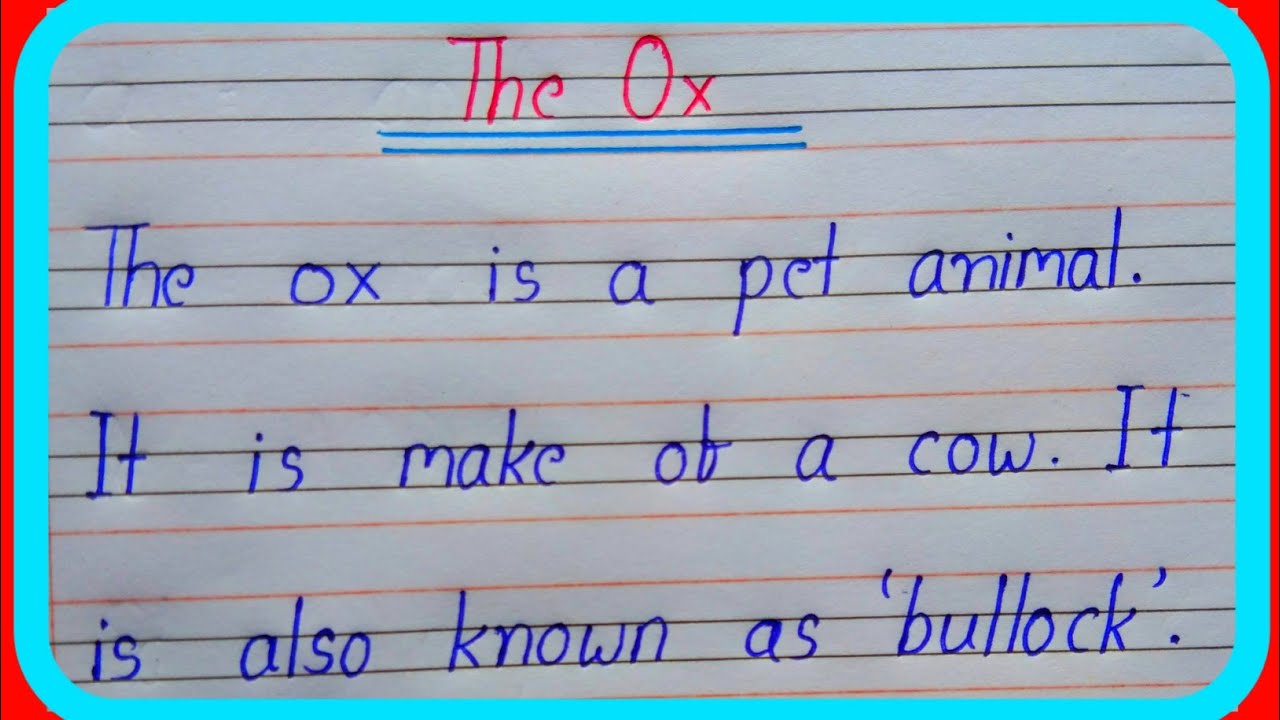 The Ox
The ox is a pet animal.
It is make of a cow. It
is also known as 'bullock'.